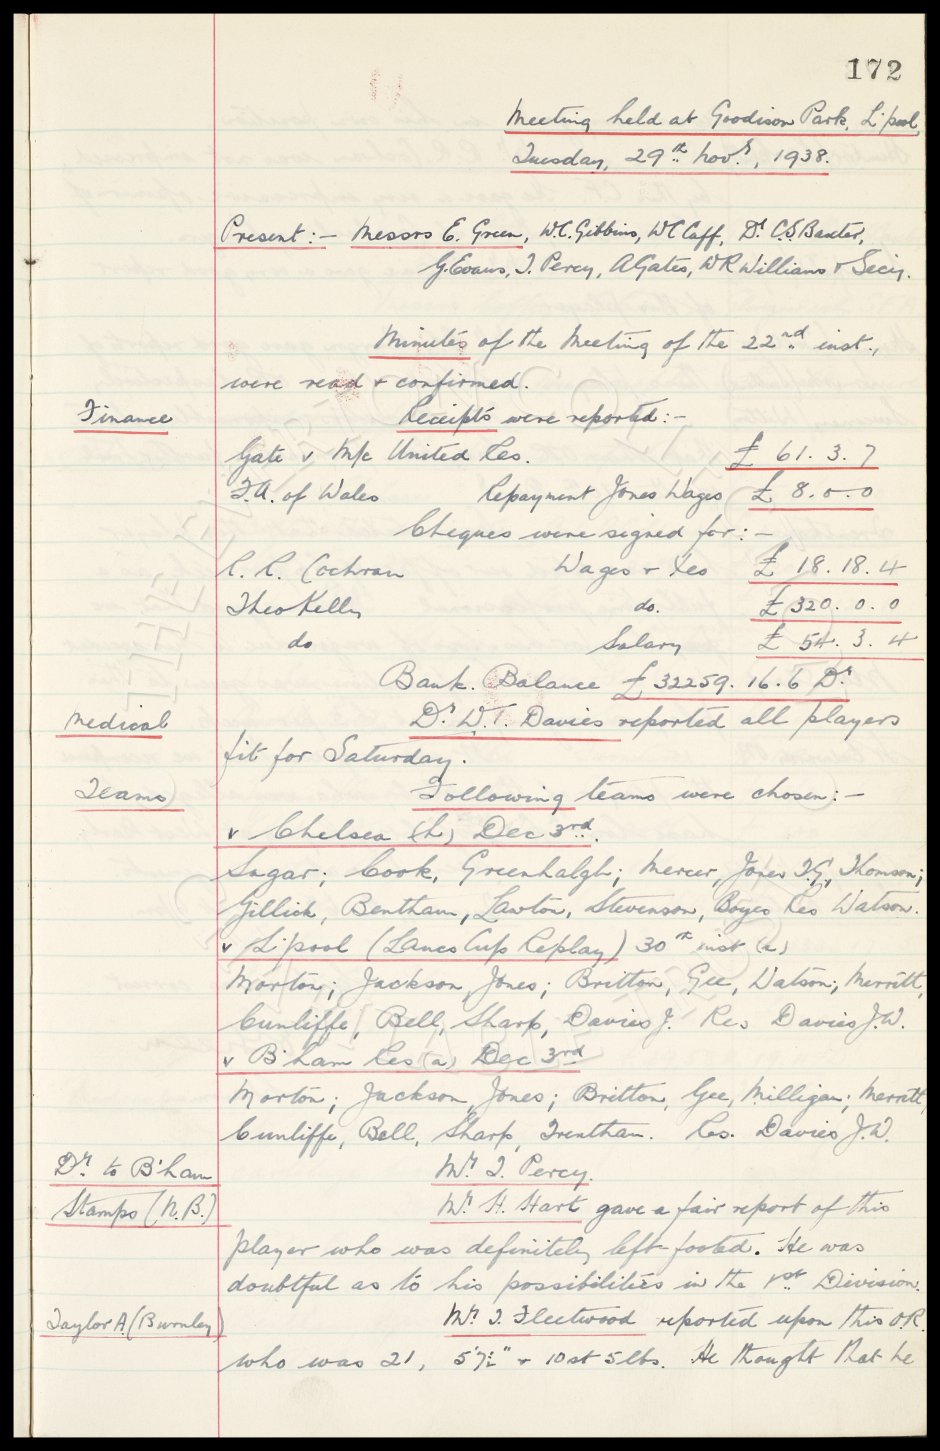 172
Meeting held at Goodison Park, L'pool,
Tuesday, 29th Novr, 1938.
Present:- Messrs E. Green, W.C. Gibbins, W C Cuff, Dr C.S. Baxter,
G. Evans, T. Percy, A Gates, W R Williams & Secy.
Minutes of the Meeting of the 22nd inst.,
were read & confirmed.
Finance Receipts were reported:-
Gate v M/c United Res. £ 61. 3. 7
F.A. of Wales Repayment Jones Wages £ 8. 0. 0
Cheques were signed for:-
R. R. Cochran Wages & Xes £ 18. 18. 4
Theo Kelly do. £ 320. 0. 0
do Salary £ 54. 3. 4
Bank Balance £ 32259. 16. 6 Dr
Medical Dr W.T. Davies reported all players
fit for Saturday.
Teams Following teams were chosen:-
v Chelsea (h) Dec 3rd.
Sagar; Cook, Greenhalgh; Mercer, Jones T.G, Thomson;
Gillick, Bentham, Lawton, Stevenson, Boyes Res Watson.
v L'pool (Lancs Cup Replay) 30th inst (a)
Morton; Jackson, Jones; Britton, Gee, Watson; Merritt,
Cunliffe, Bell, Sharp, Davies J. Res Davies J.W.
v B'ham Res (a) Dec 3rd
Morton; Jackson, Jones; Britton, Gee, Milligan; Merritt,
Cunliffe, Bell, Sharp, Trentham. Res. Davies J.W.
Dr to B'ham Mr T. Percy.
Stamps (N.B.) Mr H. Hart gave a fair report of this
player who was definitely left-footed. He was
doubtful as to his possibilities in the 1st Division.
Taylor A (Burnley) Mr T. Fleetwood reported upon this O.R.
who was 21, 5'7½" & 10st 5lbs. He thought that he